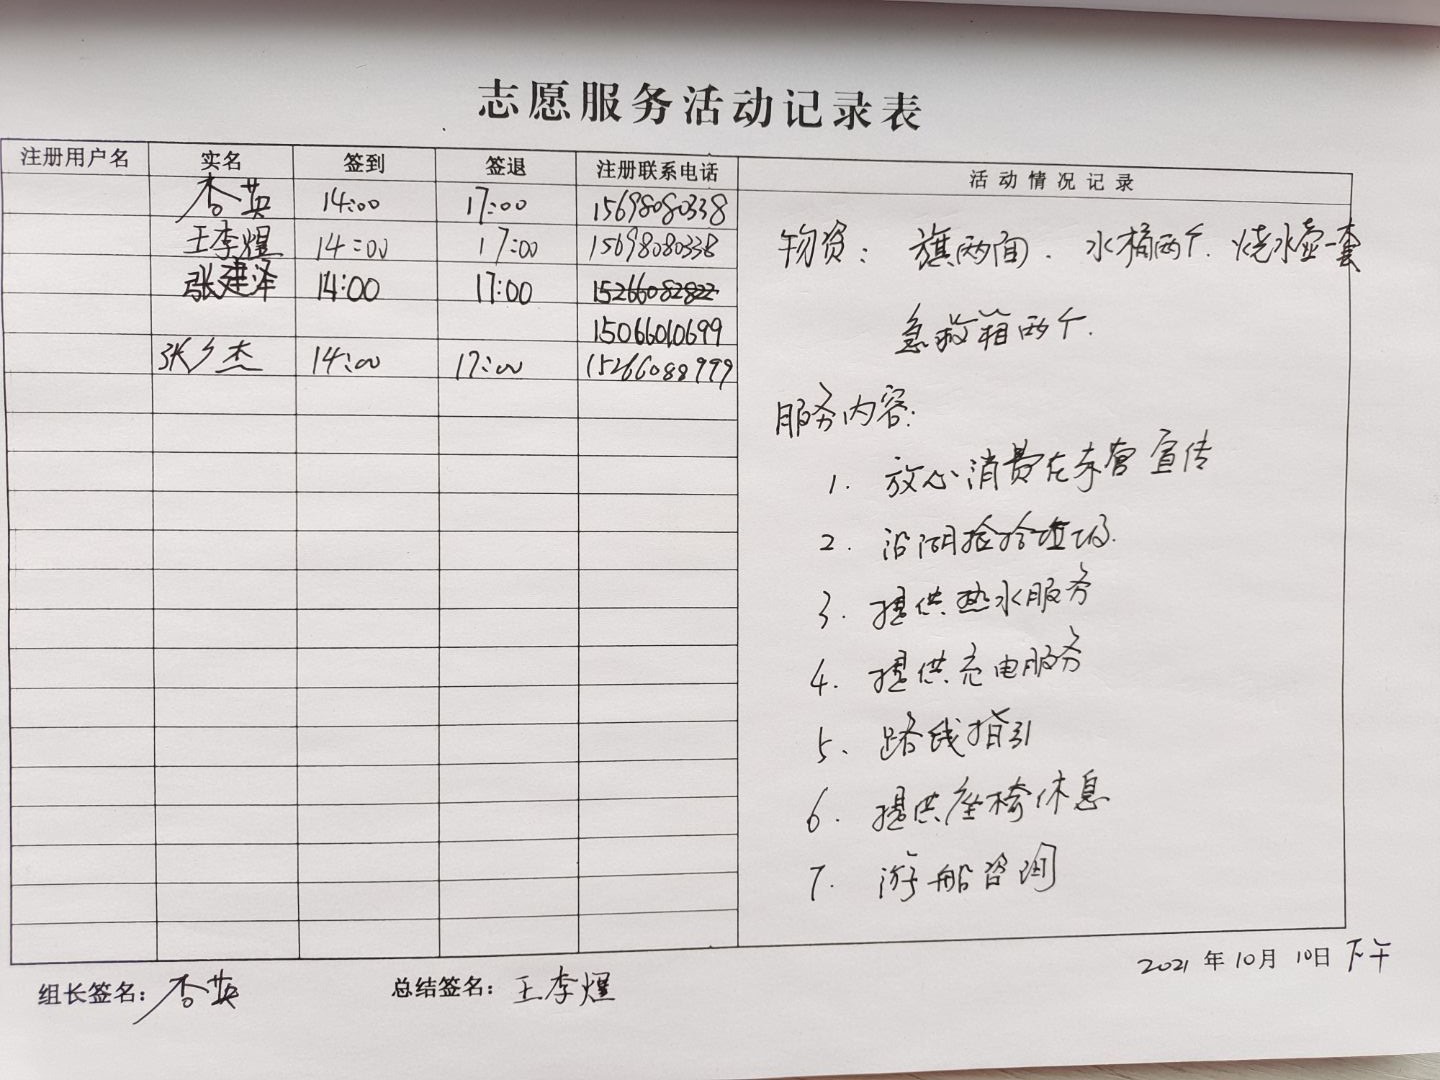 志愿服务活动记录表
注册用户名 实名 签到 签退 注册联系电话 活动情况记录
杏英 14:00 17:00 15698080338
王李煜 14:00 17:00 15698080338
张建泽 14:00 17:00 15266082822
15066010699
张乡杰 14:00 17:00 15266088999
物资：旗两面、水桶两个、烧水壶一套
急救箱两个.
服务内容:
1. 放心消费在东营宣传
2. 沿湖捡拾垃圾.
3. 提供热水服务
4. 提供充电服务
5、路线指引
6. 提供座椅休息
7. 游船咨询
2021年10月10日下午
组长签名：杏英 总结签名：王李煜